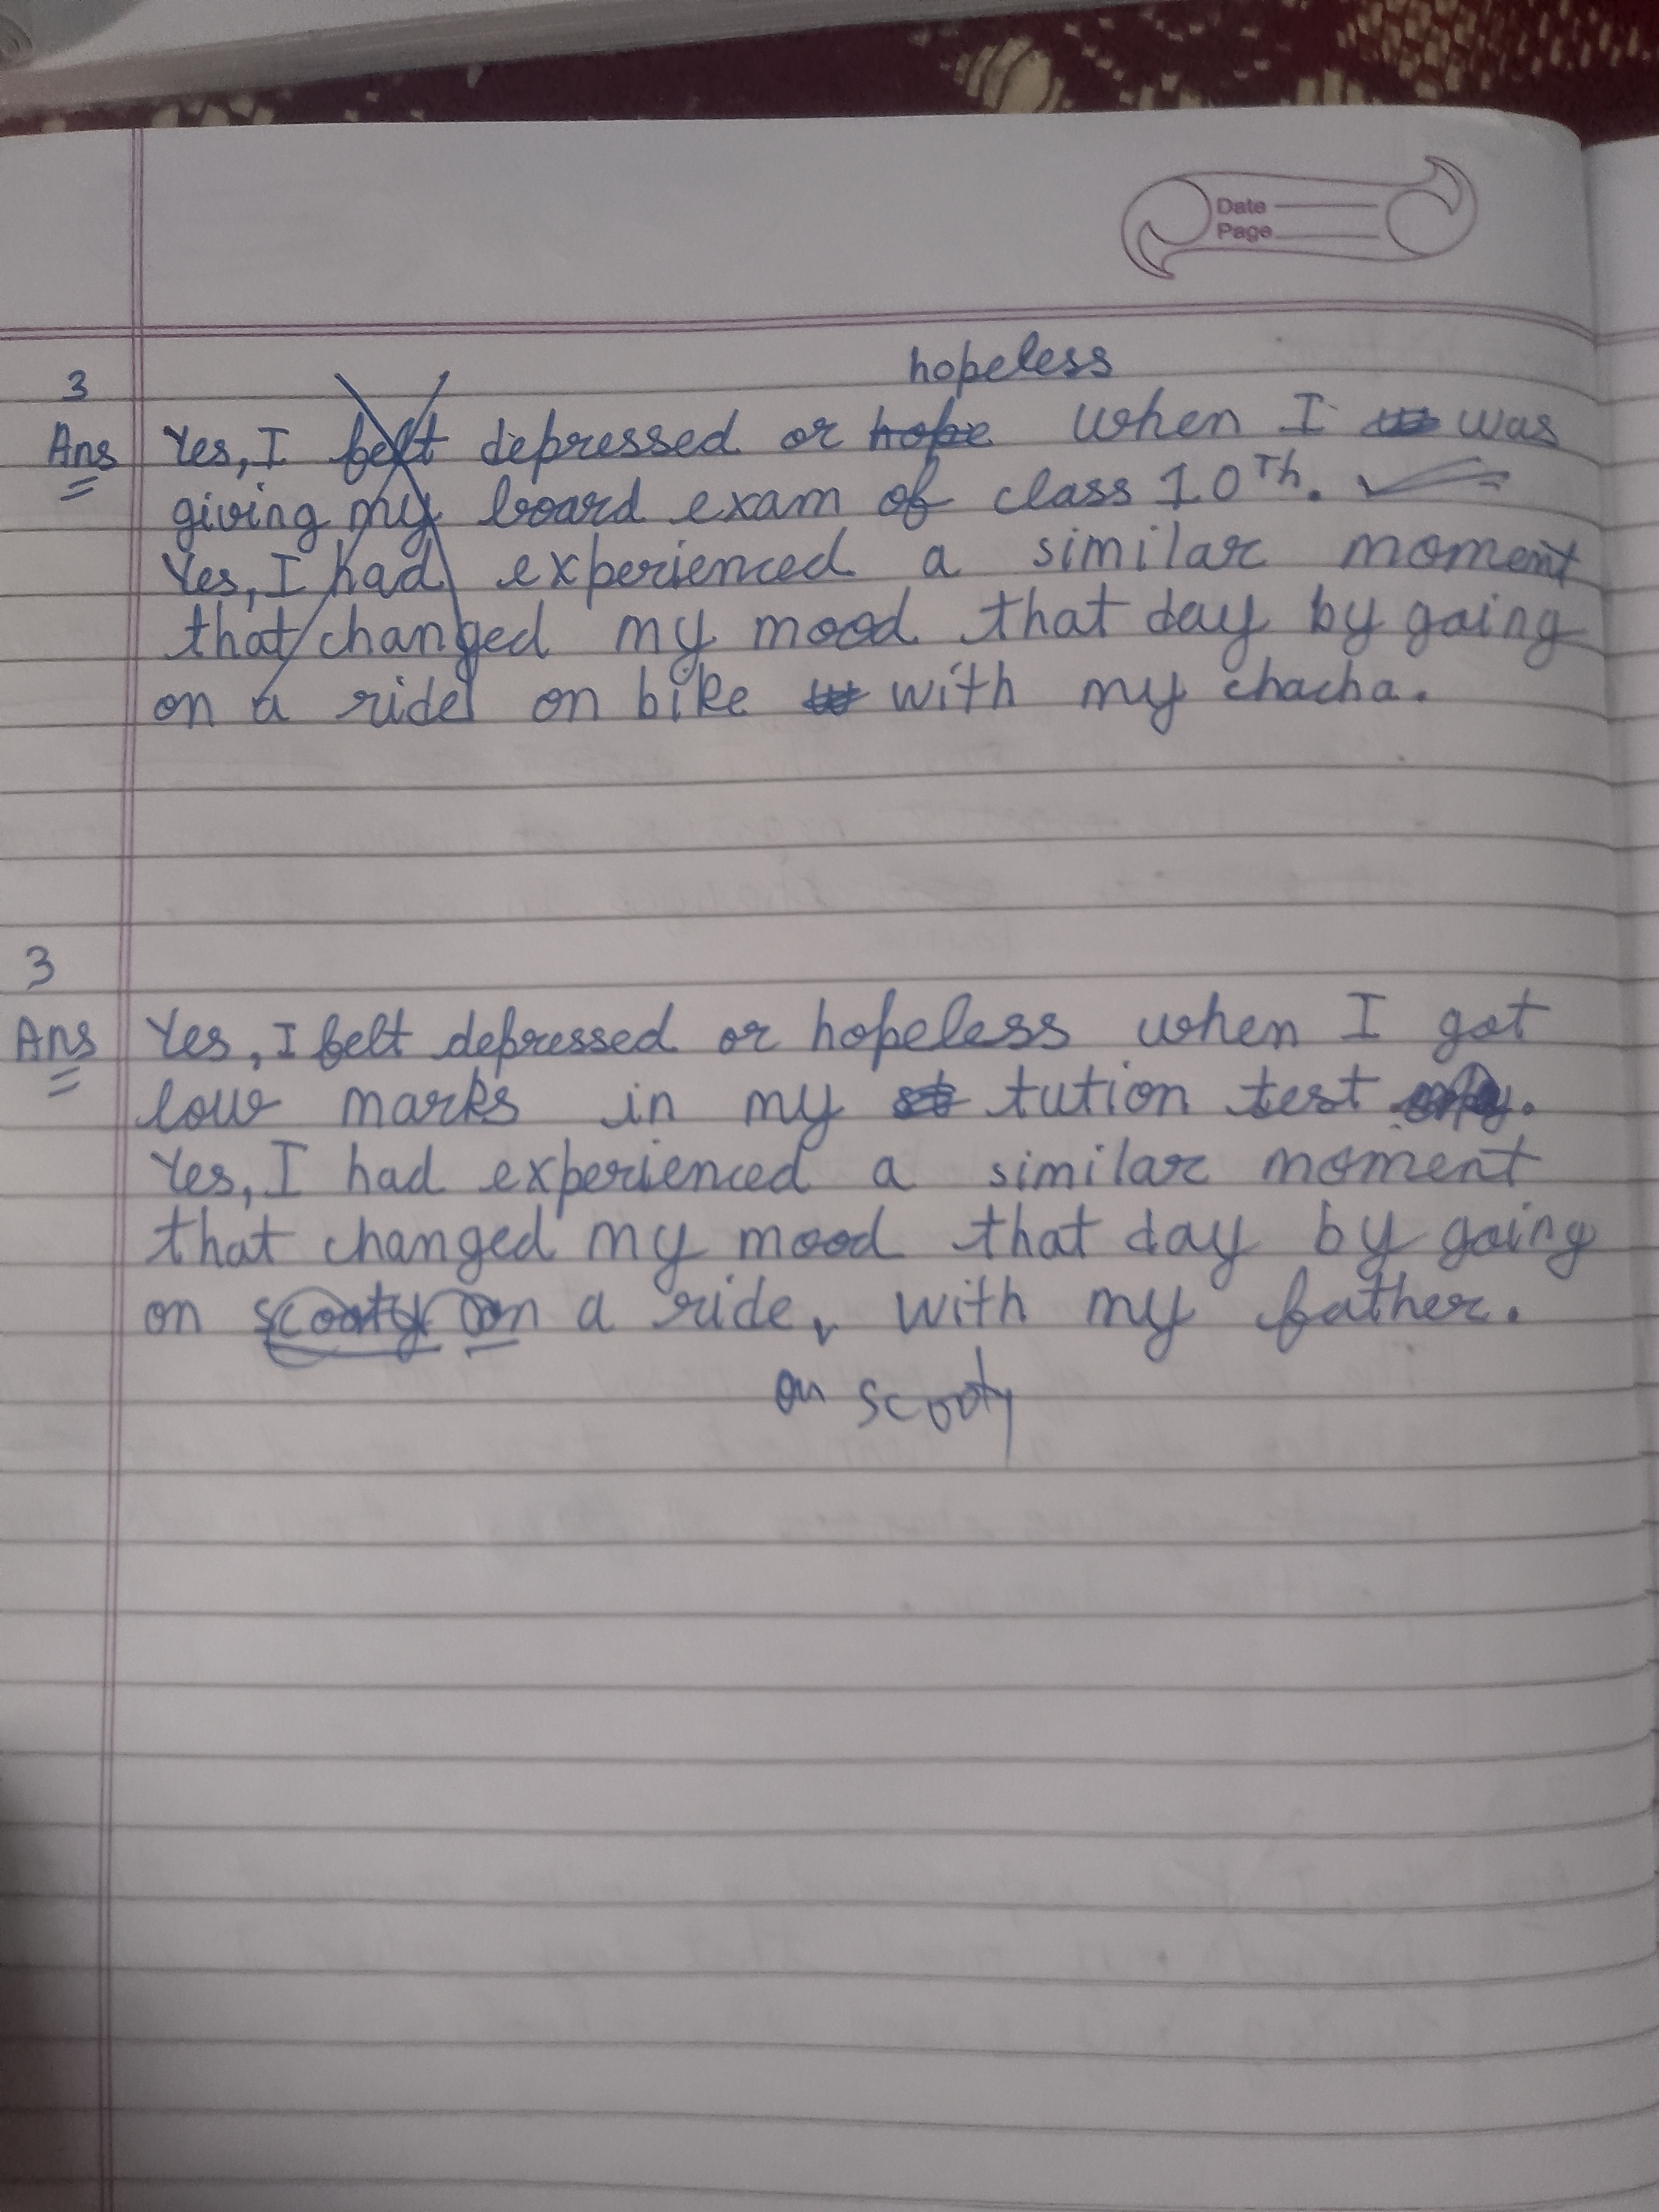 Date
Page
hopeless
3
Ans Yes, I felt depressed or hope when I was
giving my board exam of class 10Th.
Yes, I had experienced a similar moment
that changed my mood that day by going
on a ride on bike with my chacha.
3
Ans Yes, I felt depressed or hopeless when I got
low marks in my tution test
Yes, I had experienced a similar moment
that changed my mood that day by going
on scooty on a ride, with my father.
on scooty